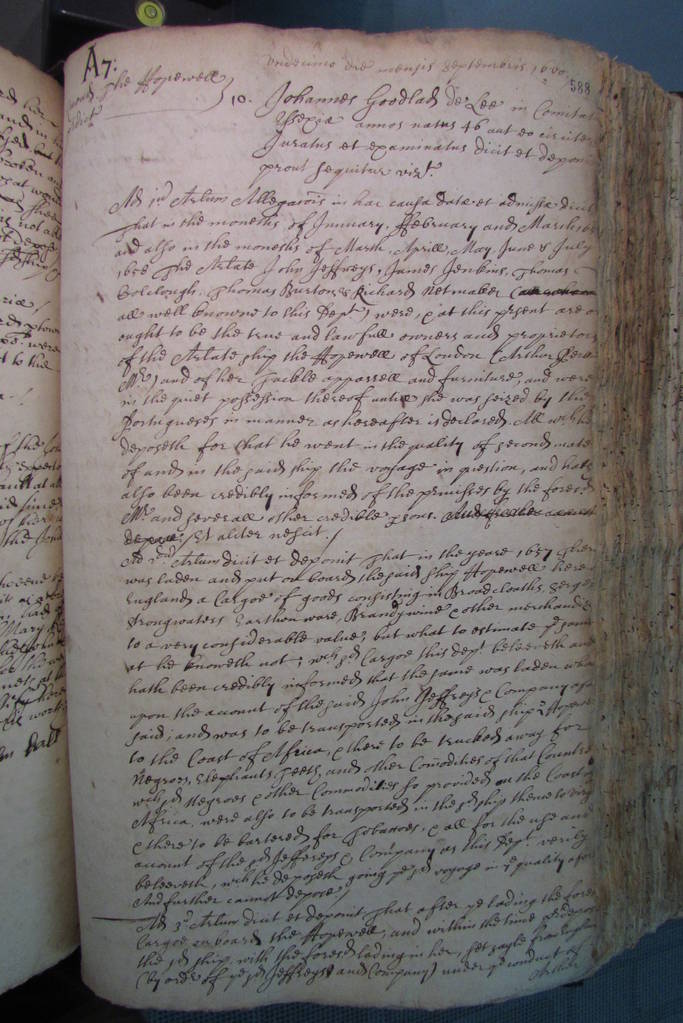 A7:
undecimo die mensis Septembris 1660.
588
The Hopewell
10. Johannes Goodlad de Lee in Comitat
Essexiæ annos natus 46 aut eo circiter
Juratus et examinatus dicit et deponit
prout sequitur vizt.
Ad jm Artlum Allegationis in hac causa datæ et admissæ dicit
That in the moneths of January, ffebruary and March
and also in the moneths of March, Aprill, May, June & July
The Artlate John Jeffreys, James Jenkins, Thomas
Colclough, Thomas Burton & Richard Netmaker
all well knowne to this Dept) were, & at this present are or
ought to be the true and lawfull owners and proprietors
of the Artlate ship the Hopewell of London (Arthur
Mr) and of her Tackle apparrell and furniture, and were
in the quiet possession thereof untill she was seized by the
Portugueses in manner as hereafter is declared. All wch he
deposeth for that he went in the quality of second mate
of and in the said ship the voyage in question, and hath
also been credibly informed of the premisses by the foresd
Mr and severall other credible psons.
Et aliter nescit./
Ad 2m Artlum dicit et deponit That in the yeare 1657 there
was laden and put on board the said ship Hopewell here
England a Cargoe of goods consisting in Broadcloaths, serges
Strongwaters Earthen ware, Brandy wine & other merchandize
to a very considerable value, but what to estimate ye same
at he knoweth not; wch sd Cargoe this dept beleeveth and
hath been credibly informed that the same was laden
upon the account of the said John Jeffreys & Company
said, and was to be transported in the said ship Hopewell
to the Coast of Africa, & there to be trucked away for
Negroes, Elephants Teeth, and other Comodities of that Countrey
wch sd Negroes & other Commodities so provided on the Coast of
Africa were also to be transported in the sd ship thence to
& there to be bartered for Tobaccoes, & all for the use and
account of the sd Jeffreys & Company as this Dept verily
beleeveth, wch he deposeth going ye sd voyage in ye quality afore
And further cannot depose./
Ad 3m Artlum dicit et deponit That after ye lading the foresd
Cargoe on board the Hopewell, and within the time
the sd ship with the foresd lading in her, set sayle from England
(by order of ye sd Jeffreys and Company) under ye conduct of
Arthur